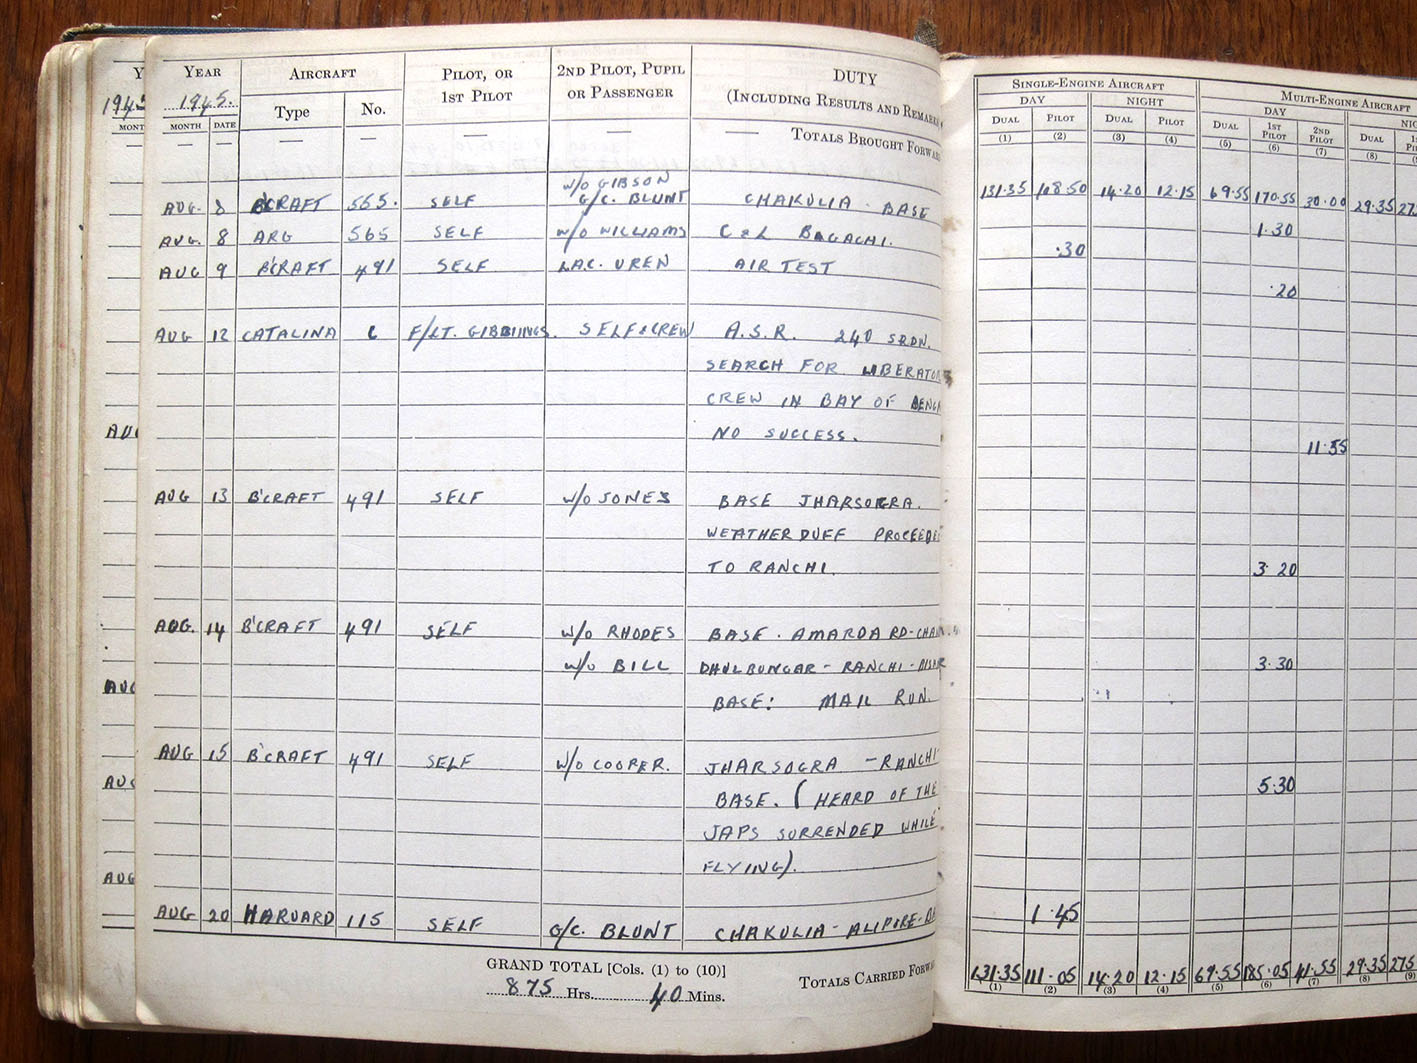 YEAR AIRCRAFT PILOT, OR 1ST PILOT 2ND PILOT, PUPIL OR PASSENGER DUTY (INCLUDING RESULTS AND REMARKS
1945. Type No.
MONTH DATE
TOTALS BROUGHT FORWARD
W/O GIBSON
AUG. 8 B'CRAFT 565. SELF G/C. BLUNT CHAKULIA - BASE
AUG. 8 ARG 565 SELF W/O WILLIAMS C & L BAGACHI.
AUG 9 B'CRAFT 491 SELF L.A.C. UREN AIR TEST
AUG 12 CATALINA L F/LT. GIBBINGS. SELF & CREW A.S.R. 240 SRDN.
SEARCH FOR LIBERATOR
CREW IN BAY OF BENGA
NO SUCCESS.
AUG 13 B'CRAFT 491 SELF W/O JONES BASE JHARSOGRA.
WEATHER DUFF PROCEEDED
TO RANCHI.
AUG. 14 B'CRAFT 491 SELF W/O RHODES BASE. AMARDA RD-CHAK
W/O BILL DHULBUMGAR - RANCHI -
BASE: MAIL RUN.
AUG 15 B'CRAFT 491 SELF W/O COOPER. JHARSOGRA - RANCHI
BASE. (HEARD OF THE
JAPS SURRENDED WHILE
FLYING).
AUG 20 HARVARD 115 SELF G/C. BLUNT CHAKULIA - ALIPORE -
GRAND TOTAL [Cols. (1) to (10)]
875 Hrs. 40 Mins.
TOTALS CARRIED FORWA
SINGLE-ENGINE AIRCRAFT MULTI-ENGINE AIRCRAFT
DAY NIGHT DAY NI
DUAL PILOT DUAL PILOT DUAL 1ST PILOT 2ND PILOT DUAL
(1) (2) (3) (4) (5) (6) (7) (8)
131.35 108.50 14.20 12.15 69.55 170.55 30.00 29.35 27
1.30
.30
.20
11.55
3.20
3.30
5.30
1.45
131.35 111.05 14.20 12.15 69.55 185.05 41.55 29.35 275
(1) (2) (3) (4) (5) (6) (7) (8) (9)
1945
MONT
AUG
AUG
AUG
AUG